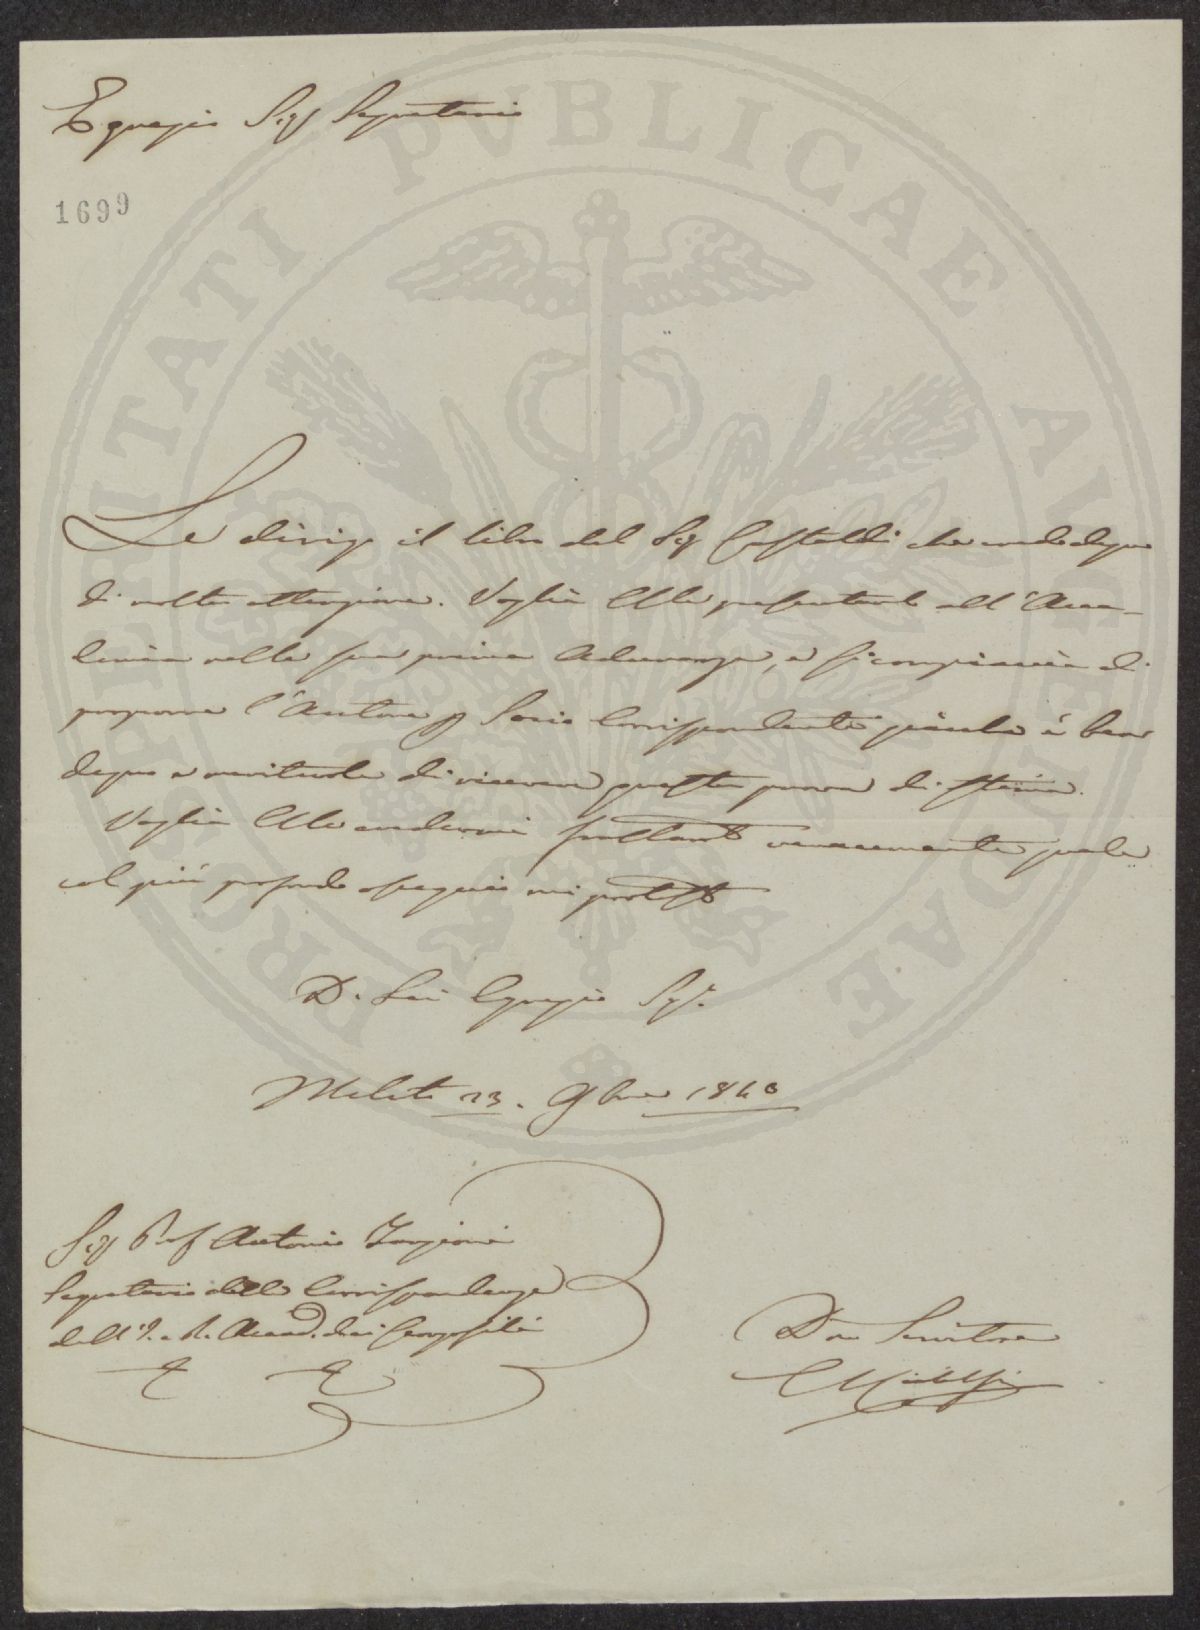 Egregio Sigr Segretario
1699
PROSPERITATI PVBLICAE AVGENDAE
Le dirigo il libro del Sigr Castaldi che credo degno
di molta attenzione. Voglia Ella presentarlo all'Acca-
demia nella sua prima Adunanza, e si compiaccia di
proporre l'Autore p Socio Corrispondente giacche è ben
degno e meritevole di ricevere questa prova di stima.
Voglia Ella credermi frattanto veracemente quale
col più profondo ossequio mi protesto
D. Lei Egregio Sigr.
23. 9bre 1840
Sigr Prof Antonio Targioni
Segretario delle Corrispondenze
dell'I. e R. Accad. dei Georgofili
Dev Servitore